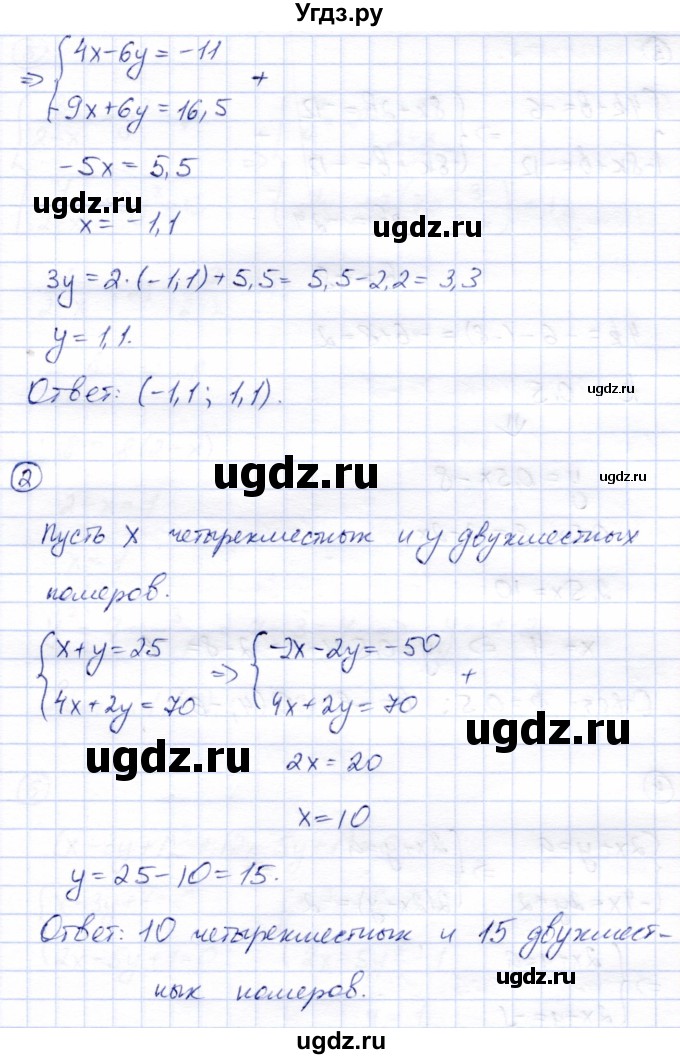 Угдз.ру
⇒ { 4x-6y = -11
-9x+6y = 16,5 +
-5x = 5,5
ugdz.ru
x = -1,1
ugdz.ru
3y = 2·(-1,1)+5,5 = 5,5-2,2 = 3,3
y = 1,1.
Ответ: (-1,1; 1,1).
ugdz.ru
ugdz.ru
ugdz.ru
2
Пусть x четырехместных и y двухместных
номеров.
{ x+y = 25 ⇒ { -2x-2y = -50
4x+2y = 70 4x+2y = 70 +
ugdz.ru
ugdz.ru
2x = 20
x = 10
y = 25-10 = 15.
Ответ: 10 четырехместных и 15 двухмест-
ugdz.ru
ных номеров.
Угдз.ру